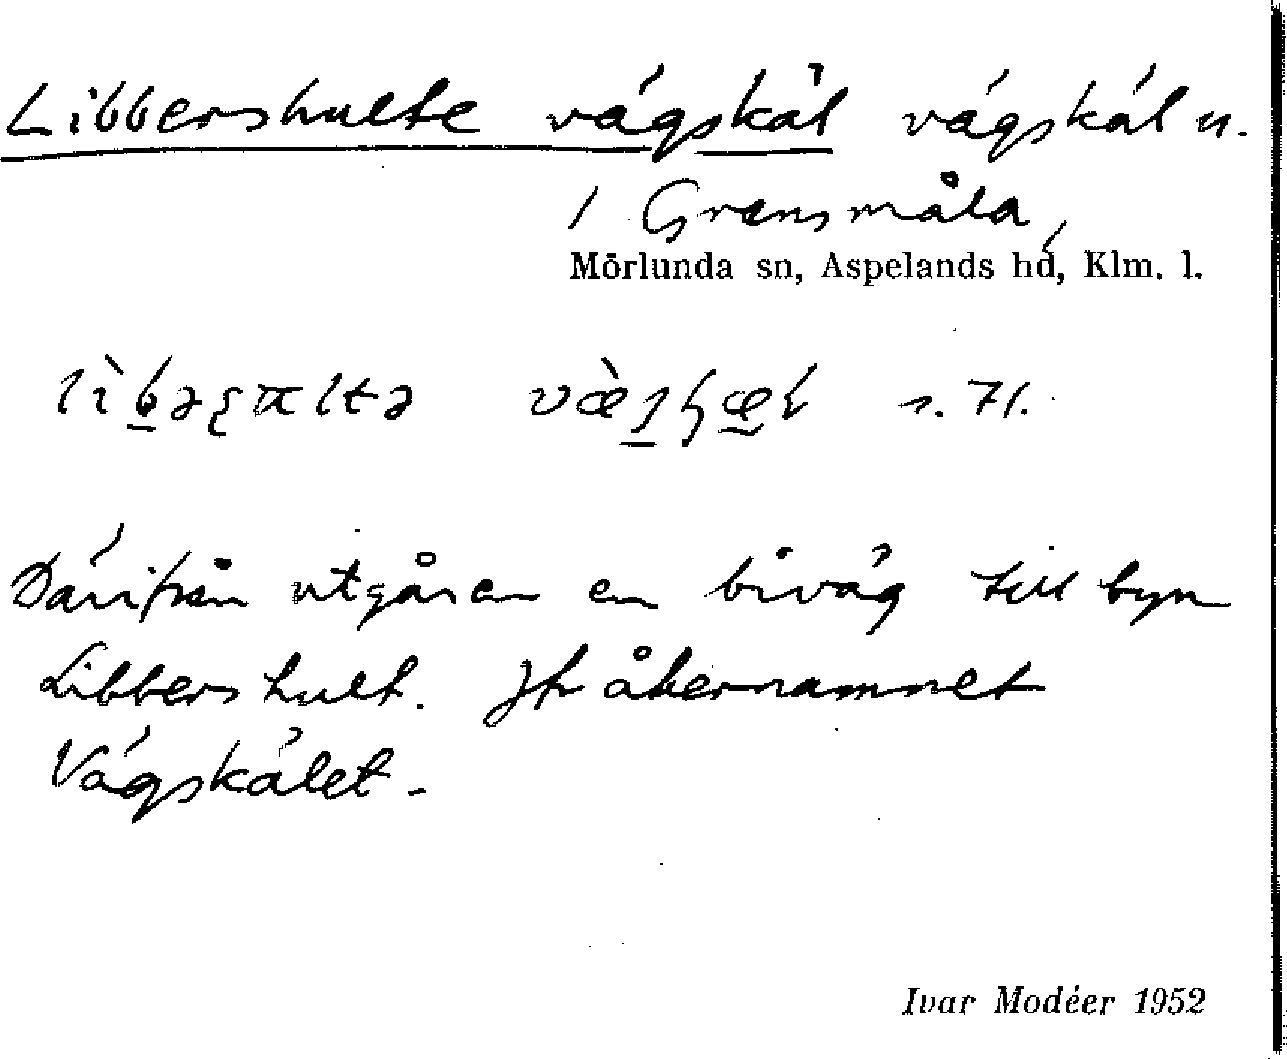 Libbershulte vägskäl vägskäl n.
/ Gransmåla,
Mörlunda sn, Aspelands hd, Klm. l.
s. 71.
Därifrån utgår en biväg till byn
Libbershult. Jfr åkernamnet
Vägskälet.
Ivar Modéer 1952